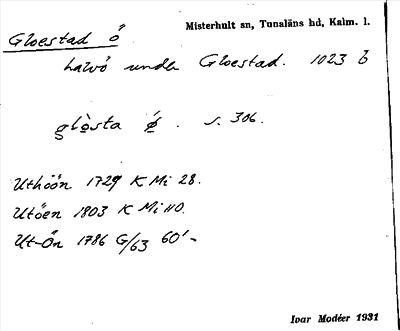 Gloestad ö
Misterhult sn, Tunaläns hd, Kalm. l.
halvö under Gloestad. 1023 b
glo̩̊sta ǿ̩. s. 306.
Uthöön 1729 K Mi 28.
Utöen 1803 K Mi 110.
Ut-Ön 1786 G/63 60' -
Ivar Modéer 1931